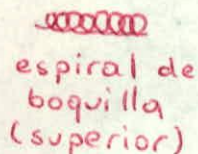 espiral de
boquilla
(superior)